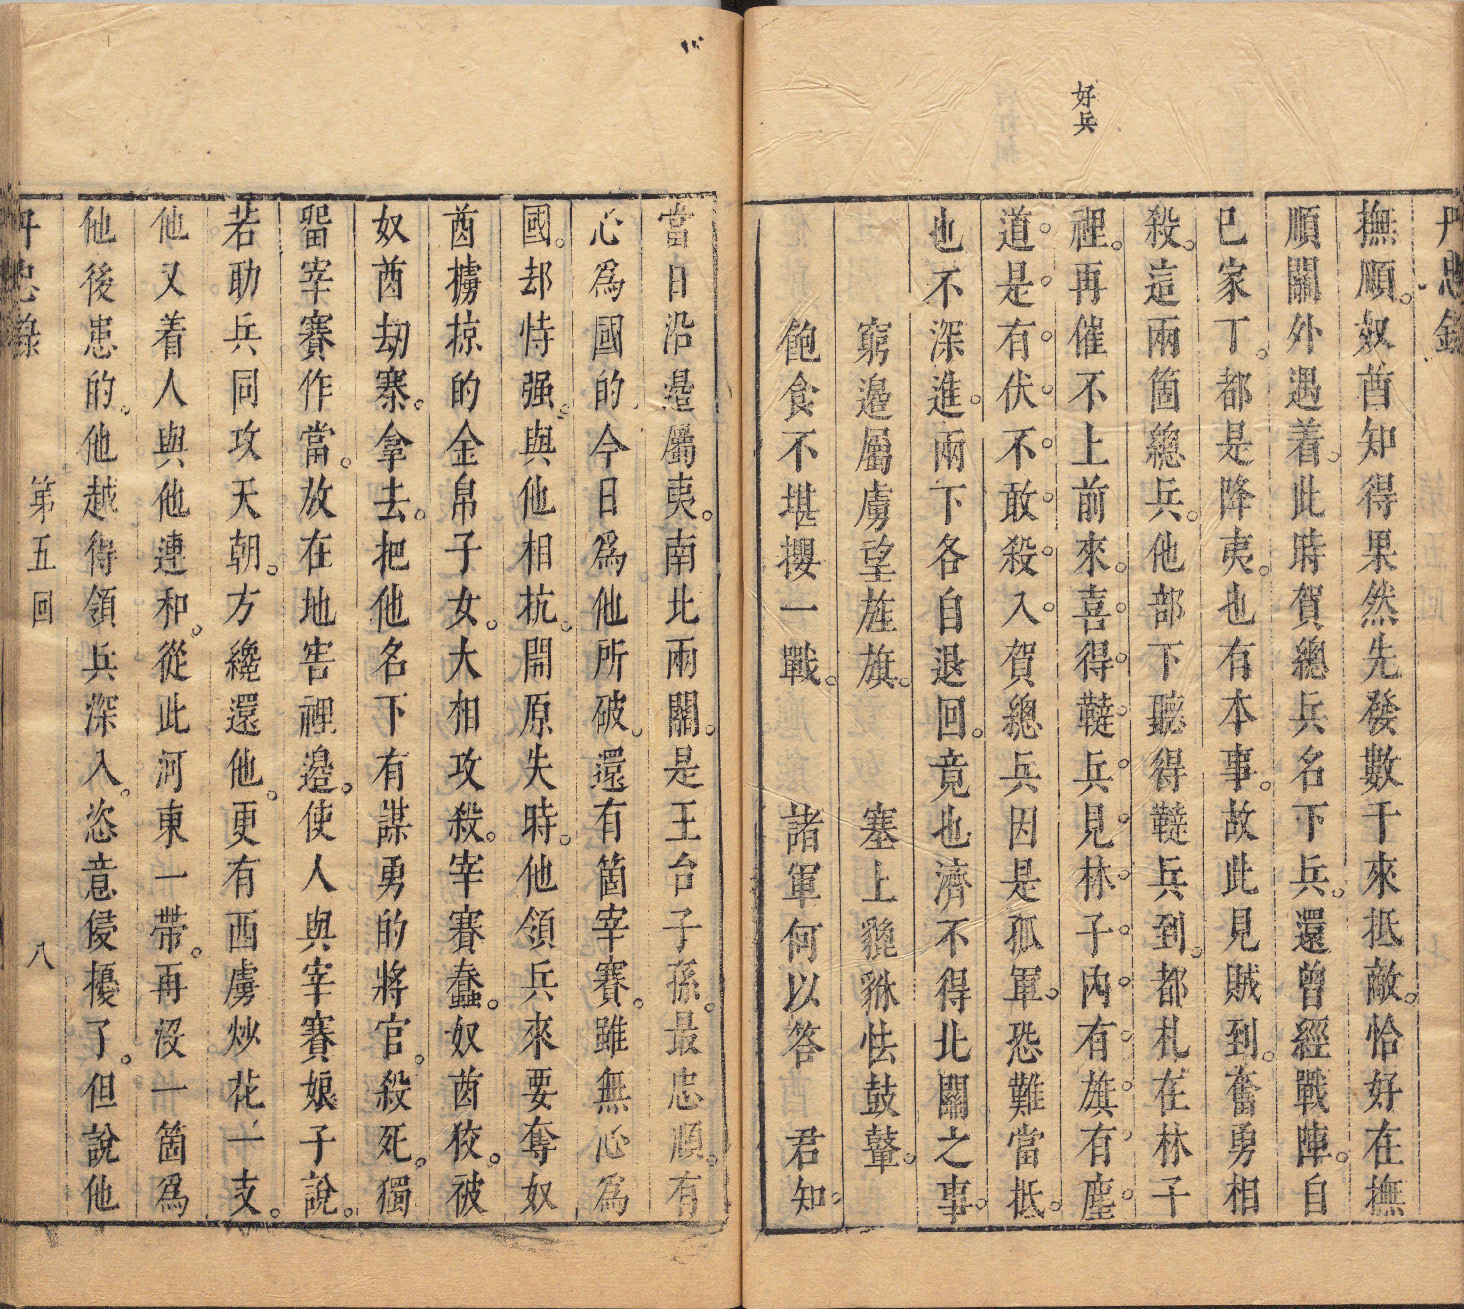 丹忠錄
好兵
撫順。奴酋知得果然先發數千來抵敵。恰好在撫
順關外遇着。此時賀總兵名下兵。還曾經戰陣。自
已家丁。都是降夷。也有本事。故此見賊到。奮勇相
殺。這兩箇總兵。他部下聽得韃兵到。都札在林子
裡。再催不上前來。喜得韃兵見林子內有旗有塵
道是有伏不敢殺入賀總兵因是孤軍。恐難當抵。
也不深進。兩下各自退回。竟也濟不得北關之事。
窮邊屬虜望旌旗。 塞上貔貅怯鼓鼙。
飽食不堪攖一戰。 諸軍何以答君知。
當日沿邊屬夷。南北兩關。是王台子孫。最忠順。有
心爲國的。今日爲他所破。還有箇宰賽。雖無心爲
國。却恃强。與他相抗。開原失時。他領兵來要奪奴
酋擄掠的金帛子女。大相攻殺。宰賽蠢。奴酋狡。被
奴酋劫寨。拿去。把他名下有謀勇的將官。殺死。獨
留宰賽作當。放在地害裡邊。使人與宰賽娘子說。
若助兵同攻天朝。方纔還他。更有西虜炒花一支。
他又着人與他連和。從此河東一帶。再沒一箇爲
他後患的。他越得領兵深入。恣意侵擾了。但說他
丹忠錄 第五回 八